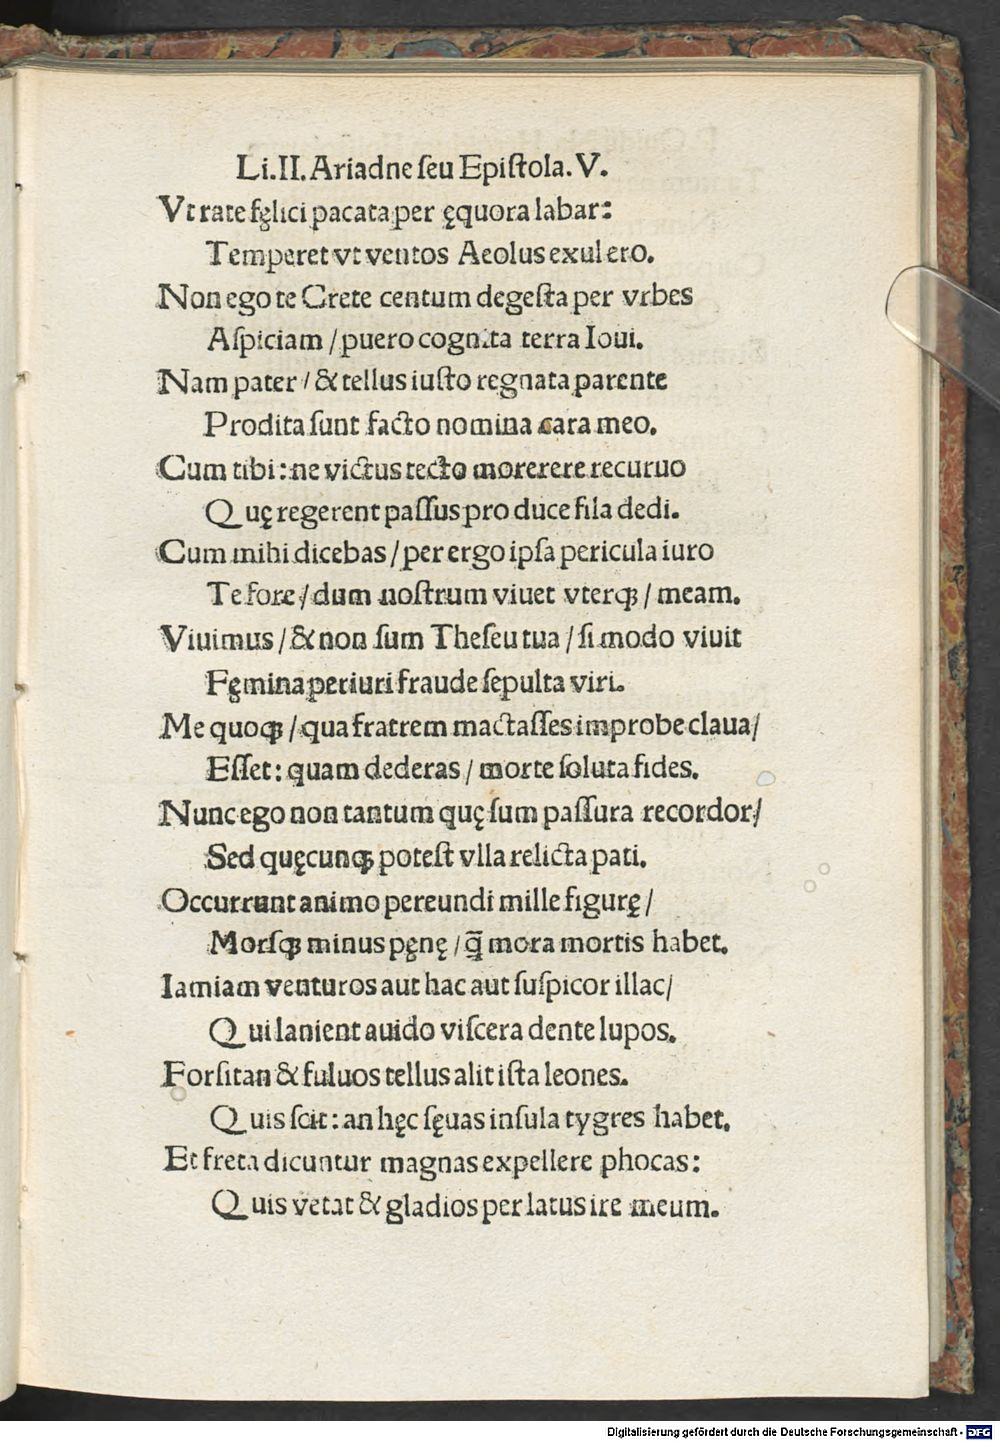 Li.II. Ariadne ſeu Epiſtola. V.
Vt rate fęlici pacata per ęquora labar:
Temperet vt ventos Aeolus exul ero.
Non ego te Crete centum degeſta per vrbes
Aſpiciam / puero cognita terra Ioui.
Nam pater / & tellus iuſto regnata parente
Prodita ſunt facto nomina cara meo.
Cum tibi: ne victus tecto morerere recuruo
Quę regerent paſſus pro duce fila dedi.
Cum mihi dicebas / per ergo ipſa pericula iuro
Te fore / dum noſtrum viuet vterqꝫ / meam.
Viuimus / & non ſum Theſeu tua / ſi modo viuit
Fęmina periuri fraude ſepulta viri.
Me quoqꝫ / qua fratrem mactaſſes improbe claua /
Eſſet: quam dederas / morte ſoluta fides.
Nunc ego non tantum quę ſum paſſura recordor /
Sed quęcunqꝫ poteſt vlla relicta pati.
Occurrunt animo pereundi mille figurę /
Morſqꝫ minus pęnę / q̄ mora mortis habet.
Iamiam venturos aut hac aut ſuſpicor illac /
Qui lanient auido viſcera dente lupos.
Forſitan & fuluos tellus alit iſta leones.
Quis ſcit: an hęc ſęuas inſula tygres habet.
Et freta dicuntur magnas expellere phocas:
Quis vetat & gladios per latus ire meum.
Digitalisierung gefördert durch die Deutsche Forschungsgemeinschaft - DFG